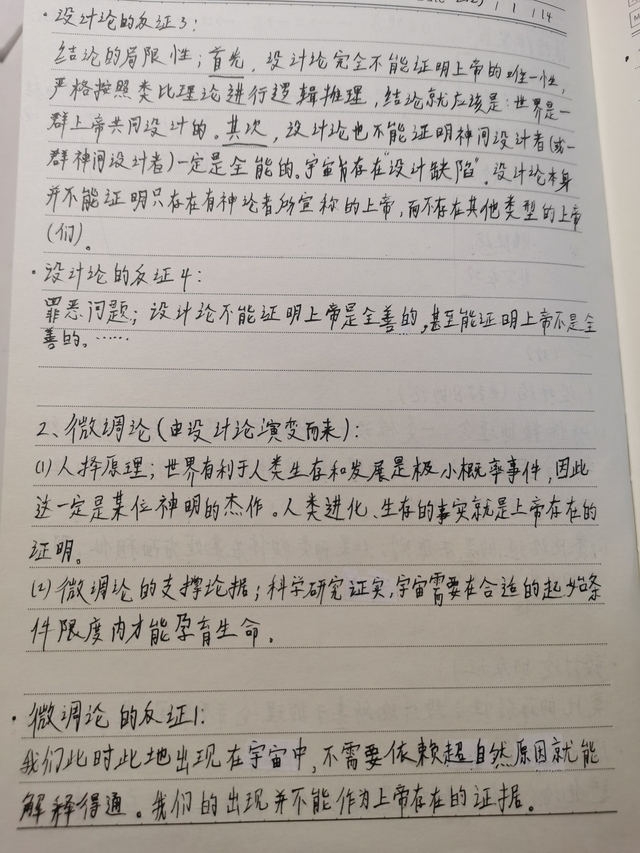 ·设计论的反证3：
结论的局限性；首先，设计论完全不能证明上帝的唯一性，
严格按照类比理论进行逻辑推理，结论就应该是：世界是一
群上帝共同设计的。其次，设计论也不能证明神问设计者(或一
群神问设计者)一定是全能的。宇宙有存在“设计缺陷”。设计论本身
并不能证明只存在有神论者所宣称的上帝，而不存在其他类型的上帝
(们)。
·设计论的反证4：
罪恶问题；设计论不能证明上帝是全善的，甚至能证明上帝不是全
善的。……
2、微调论(由设计论演变而来)：
(1)人择原理；世界有利于人类生存和发展是极小概率事件，因此
这一定是某位神明的杰作。人类进化、生存的事实就是上帝存在的
证明。
(2)微调论的支撑论据；科学研究证实，宇宙需要在合适的起始条
件限度内才能孕育生命。
·微调论的反证1：
我们此时此地出现在宇宙中，不需要依赖超自然原因就能
解释得通。我们的出现并不能作为上帝存在的证据。